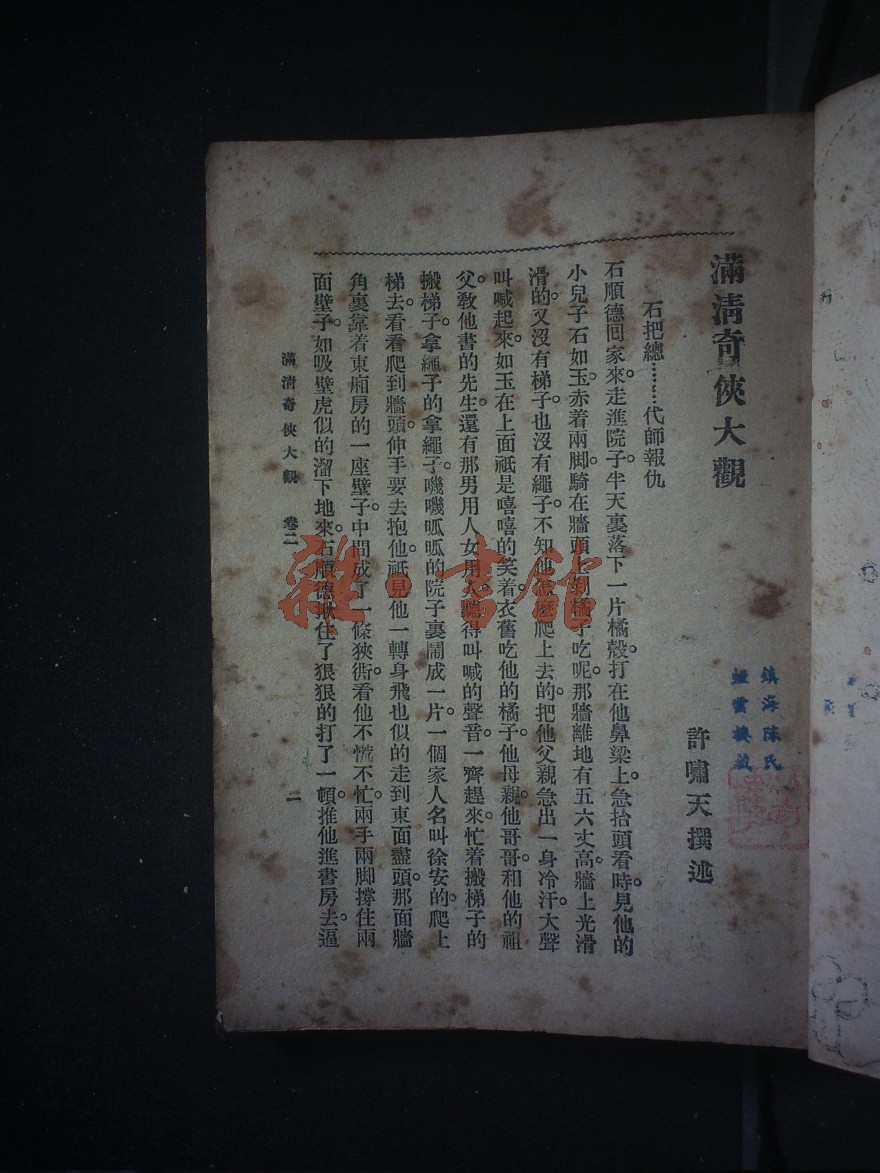 滿清奇俠大觀
鎮海陳氏
許嘯天撰述
石把總………代師報仇
石順德回家來走進院子半天裏落下一片橘殼打在他鼻梁上急抬頭看時見他的
小兒子石如玉赤着兩脚騎在牆頭上剝橘子吃呢那牆離地有五六丈高牆上光滑
滑的又沒有梯子也沒有繩子不知他怎麽爬上去的把他父親急出一身冷汗大聲
叫喊起來如玉在上面祇是嘻嘻的笑着衣舊吃他的橘子他母親他哥哥和他的祖
父敎他書的先生還有那男用人女用人聽得叫喊的聲音一齊趕來忙着搬梯子的
搬梯子拿繩子的拿繩子嘰嘰呱呱的院子裏鬧成一片一個家人名叫徐安的爬上
梯去看看爬到牆頭伸手要去抱他祇見他一轉身飛也似的走到東面盡頭那面牆
角裏靠着東廂房的一座壁子中間成了一條狹衖看他不慌不忙兩手兩脚撐住兩
面壁子如吸壁虎似的溜下地來石順德揪住了狠狠的打了一頓推他進書房去逼
滿清奇俠大觀 卷二
二
雜·書館